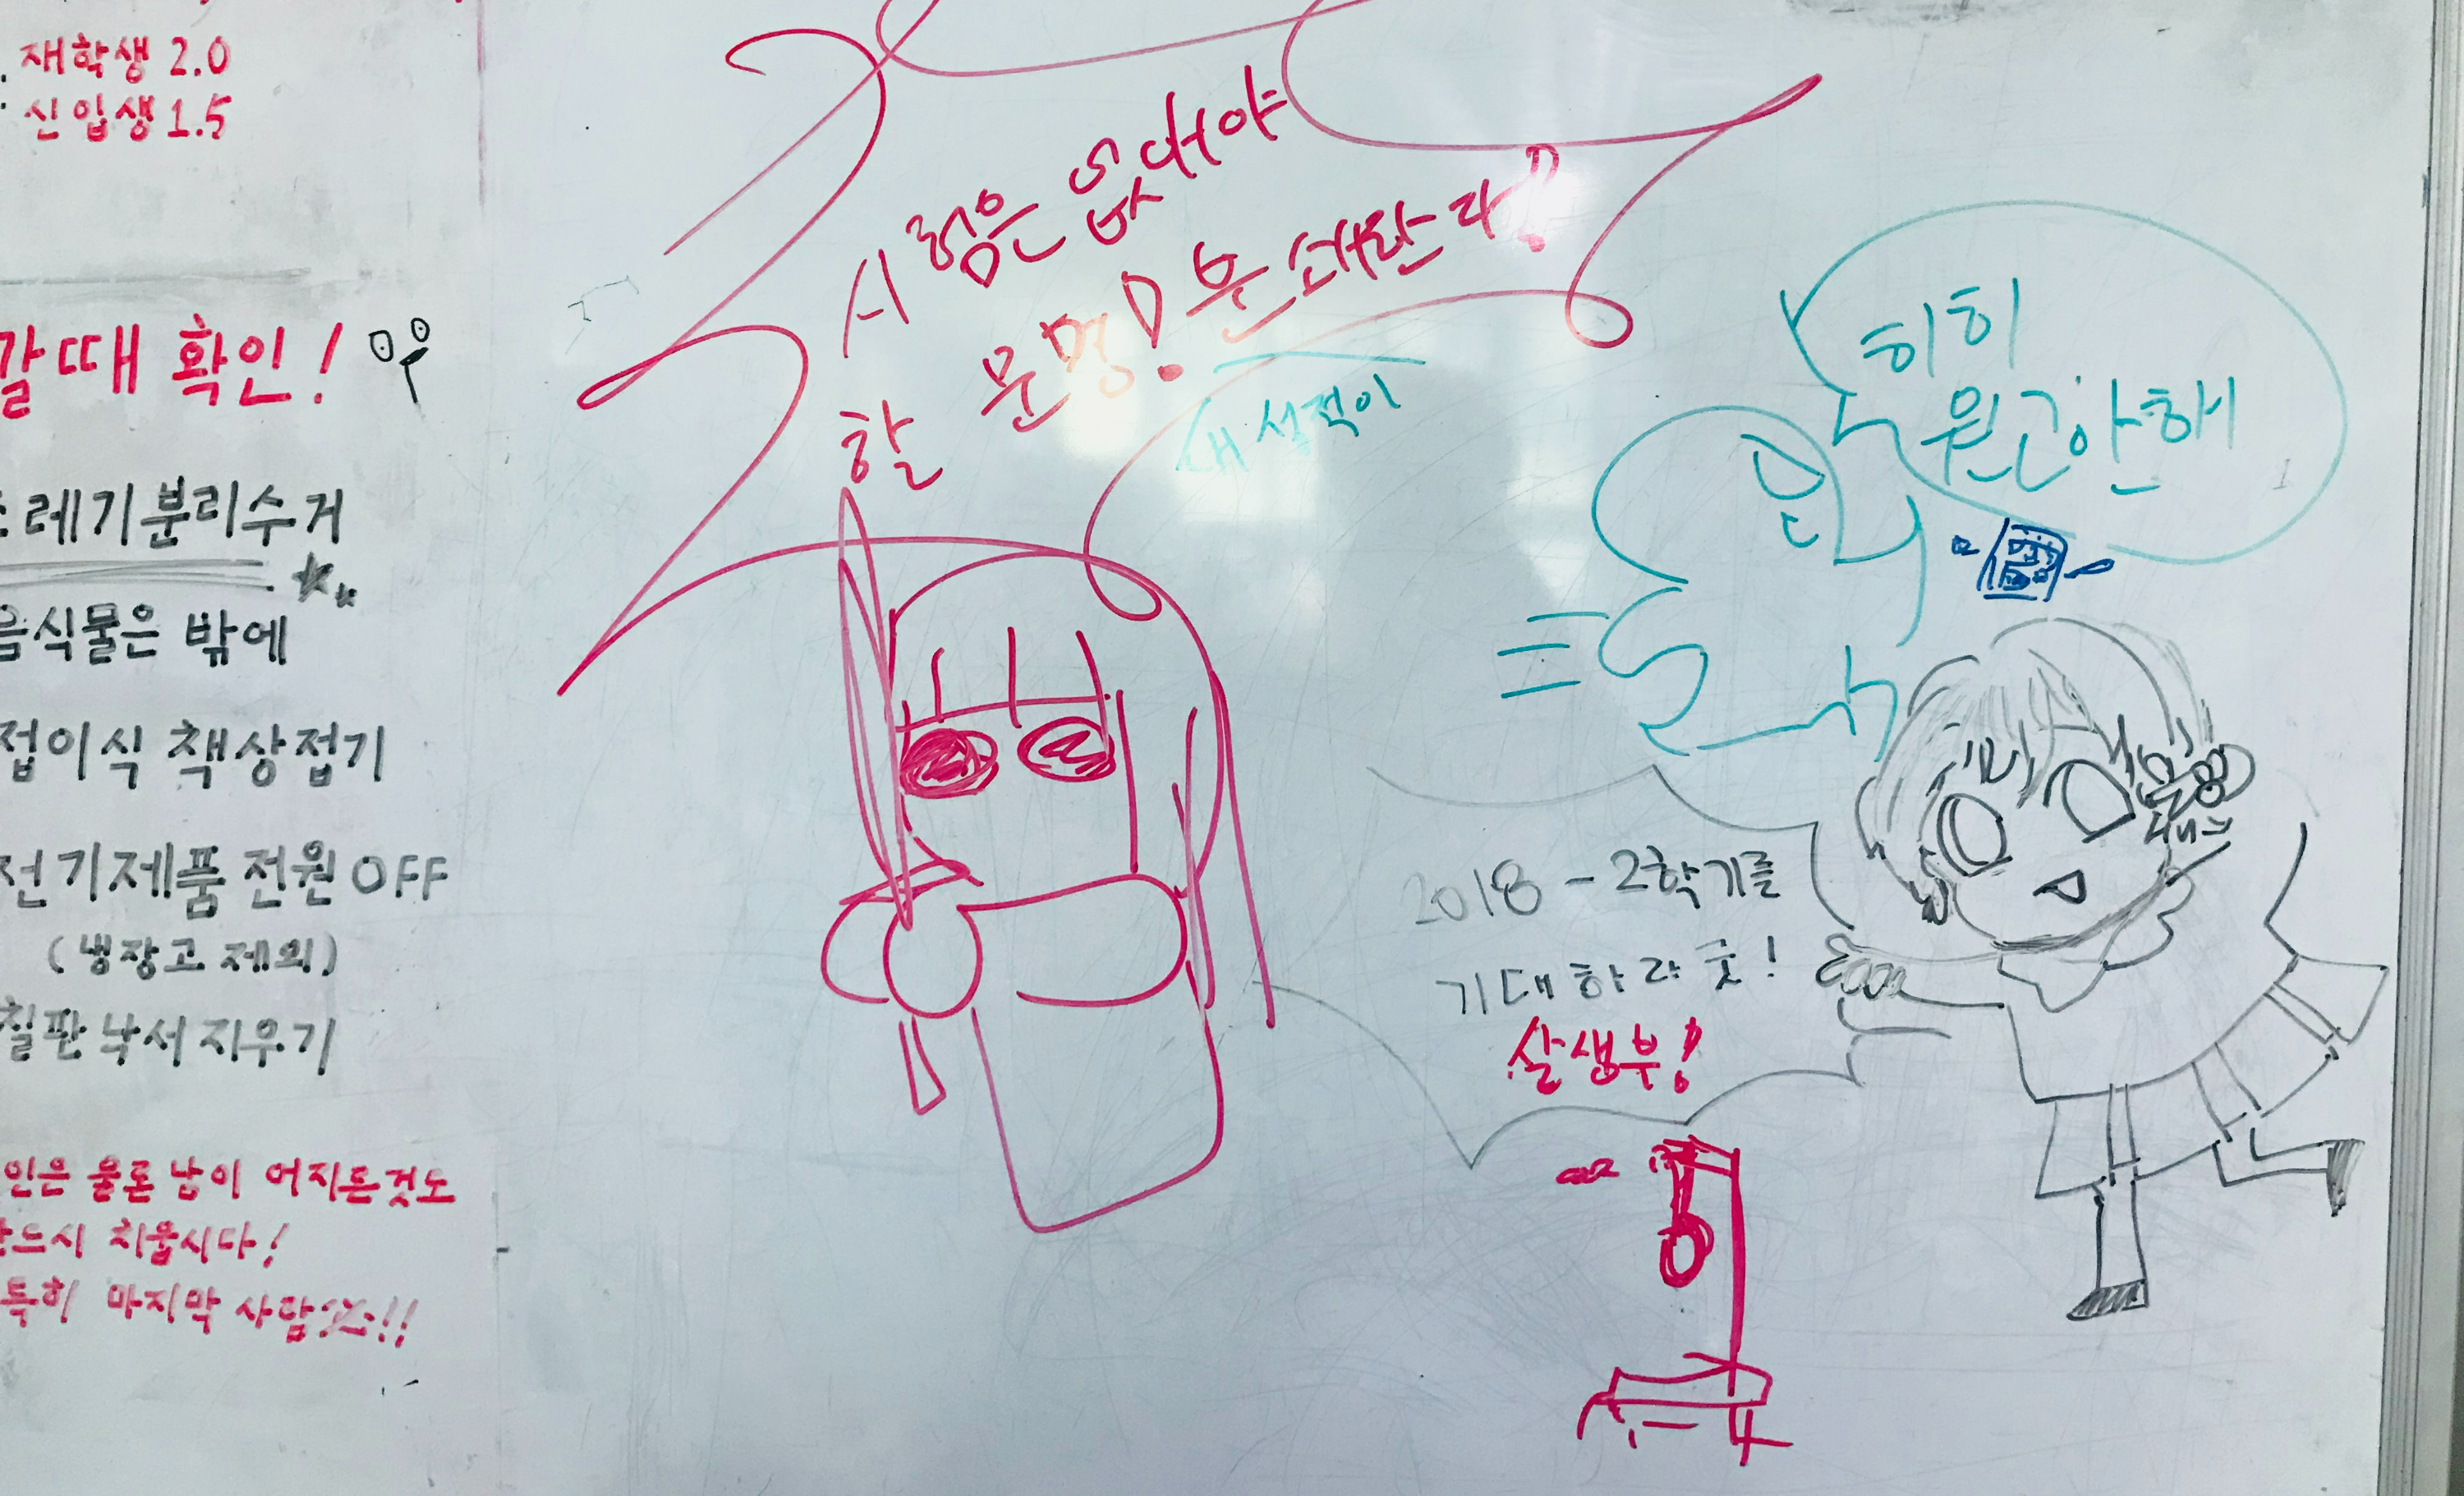 재학생 2.0
신입생 1.5
갈때 확인!
레기분리수거
음식물은 밖에
접이식 책상접기
전기제품 전원 OFF
(냉장고 제외)
칠판 낙서 지우기
인은 물론 남이 어지른것도
반드시 치웁시다!
특히 마지막 사람
시험은 없어야
할 문명!
내 성적이
히히
원근안해
2018-2학기를
기대하라굿!
살생부!